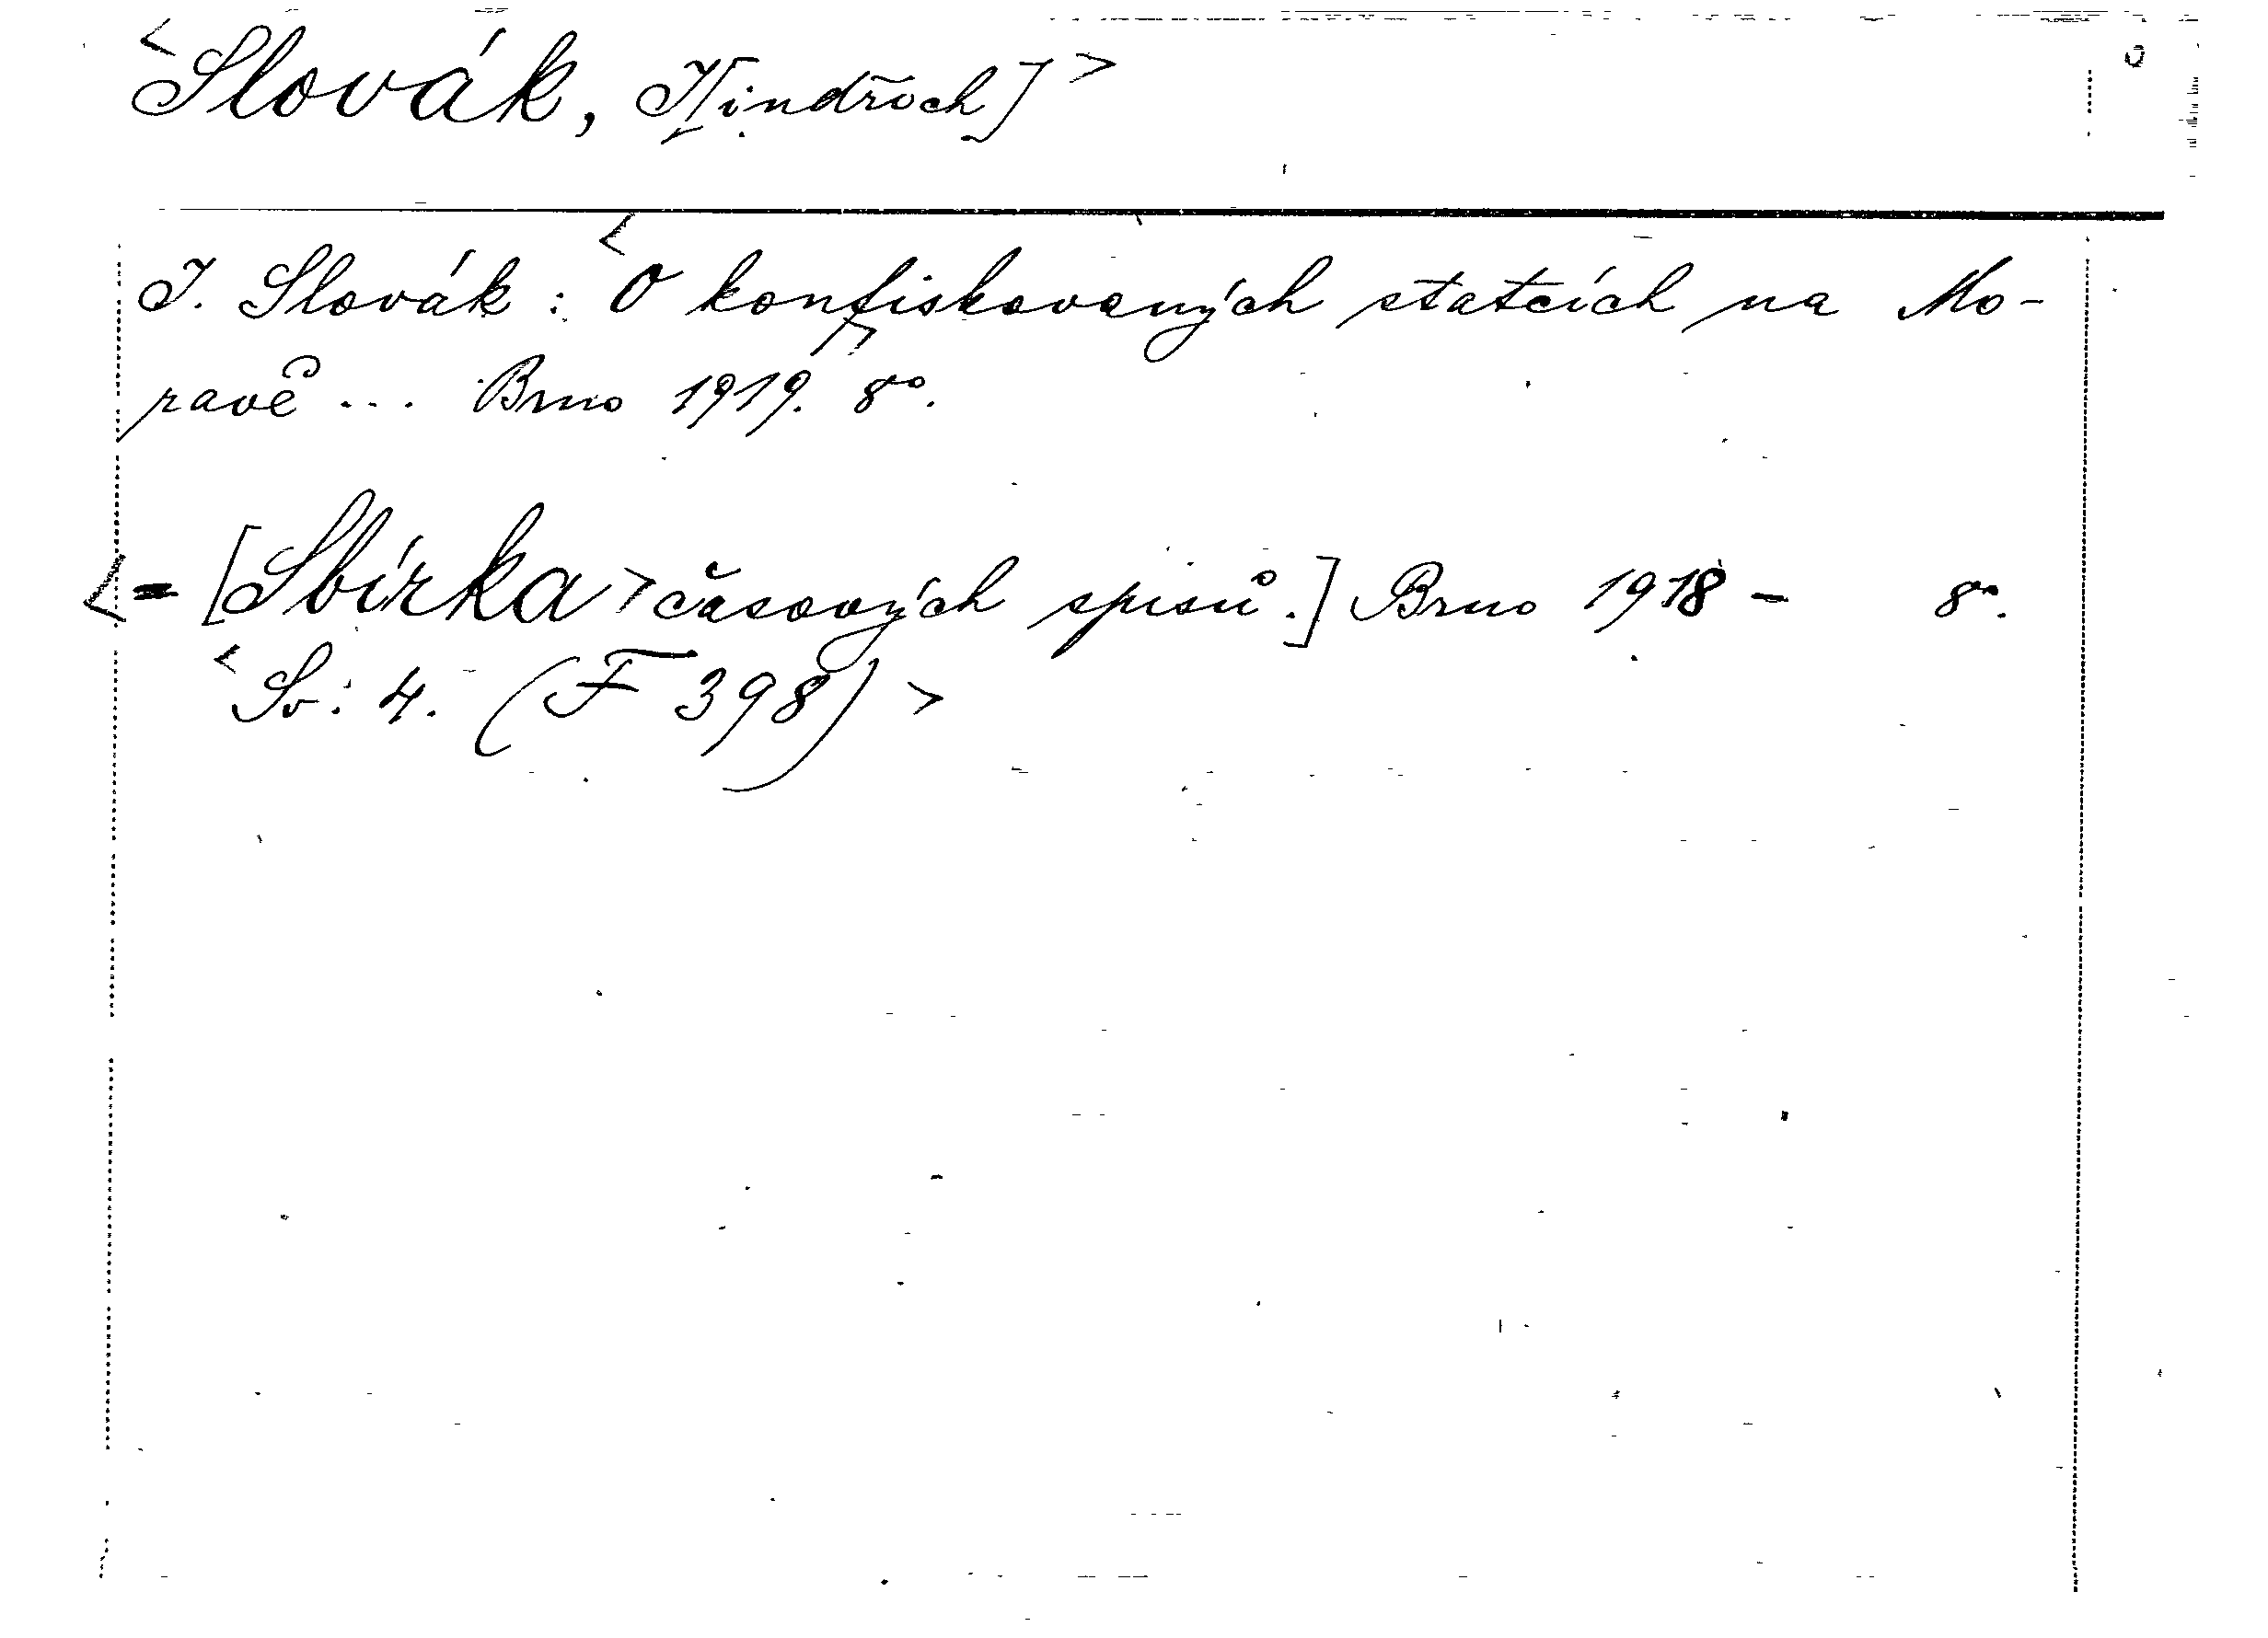 <Slovák, J[indřich]>
J. Slovák: <O konfiskovaných statcích na Mo-
ravě... Brno 1919.> 8°.
<= [Sbírka> časových spisů.] Brno 1918 - 8°.
<Sv: 4. (F 398)>